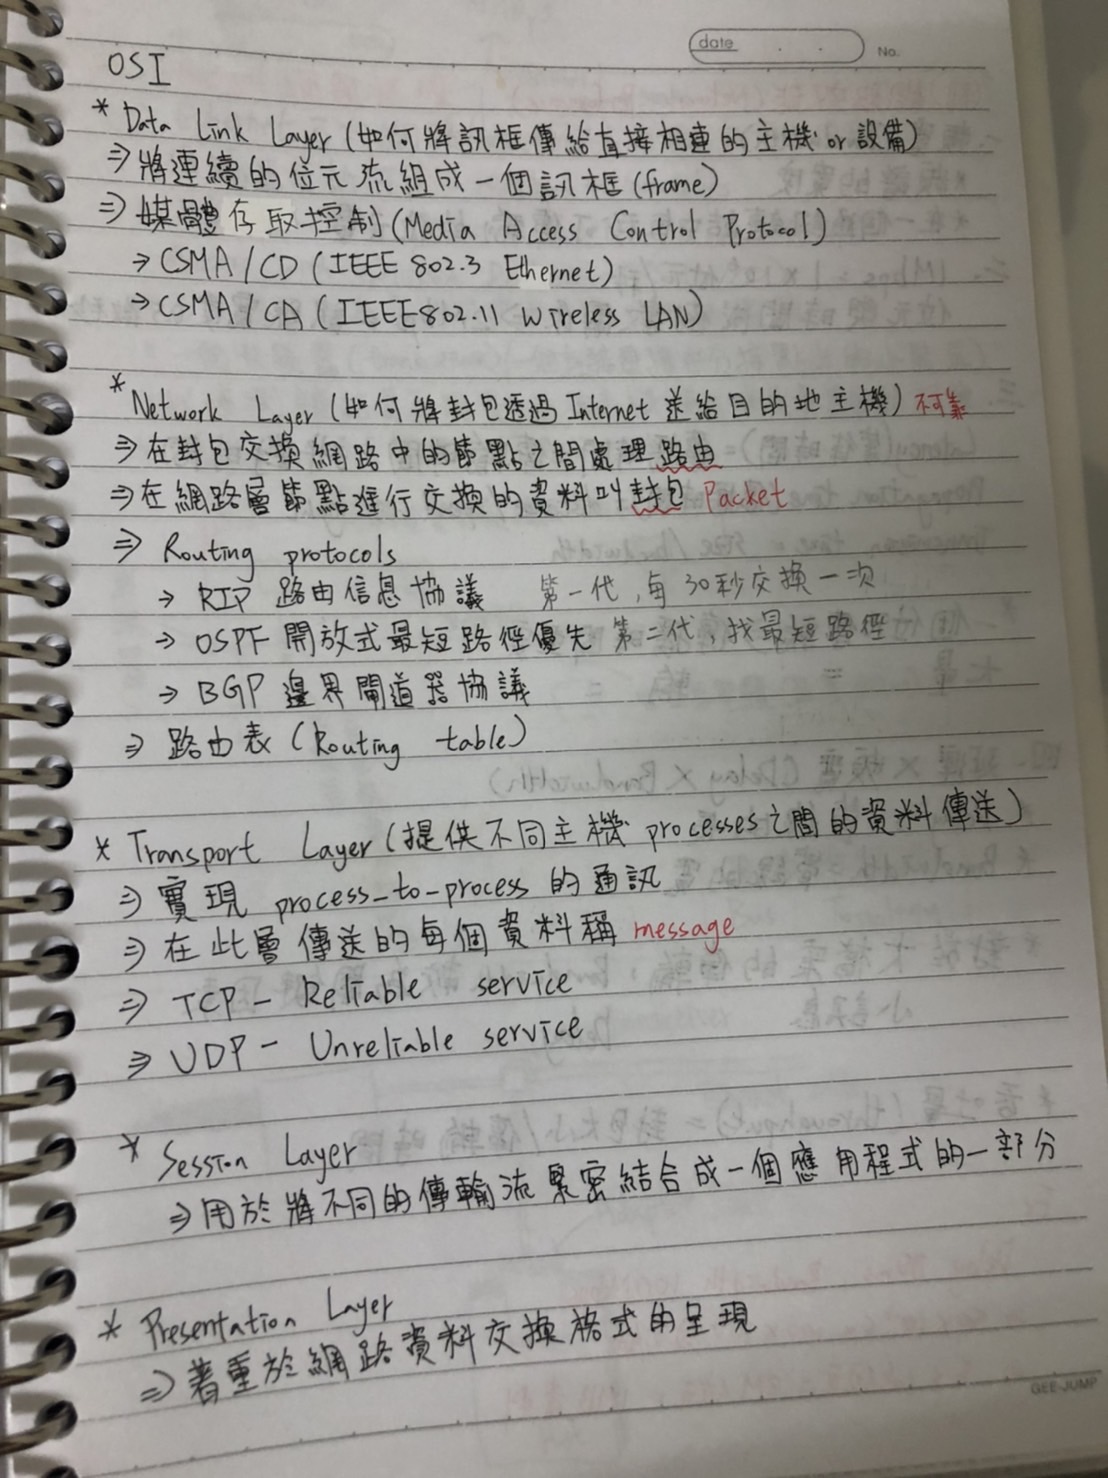 date
No.
OSI
* Data Link Layer (如何將訊框傳給直接相連的主機 or 設備)
⇒ 將連續的位元流組成一個訊框 (frame)
⇒ 媒體存取控制 (Media Access Control Protocol)
→ CSMA/CD (IEEE 802.3 Ethernet)
→ CSMA/CA (IEEE802.11 Wireless LAN)
* Network Layer (如何將封包透過 Internet 送給目的地主機) 不可靠
⇒ 在封包交換網路中的節點之間處理路由
⇒ 在網路層節點進行交換的資料叫封包 Packet
⇒ Routing protocols
→ RIP 路由信息協議 第一代,每30秒交換一次
→ OSPF 開放式最短路徑優先 第二代,找最短路徑
→ BGP 邊界閘道器協議
⇒ 路由表 (Routing table)
* Transport Layer (提供不同主機 processes 之間的資料傳送)
⇒ 實現 process-to-process 的通訊
⇒ 在此層傳送的每個資料稱 message
⇒ TCP - Reliable service
⇒ UDP - Unreliable service
* Session Layer
⇒ 用於將不同的傳輸流緊密結合成一個應用程式的一部分
* Presentation Layer
⇒ 著重於網路資料交換格式的呈現
GEE-JUMP